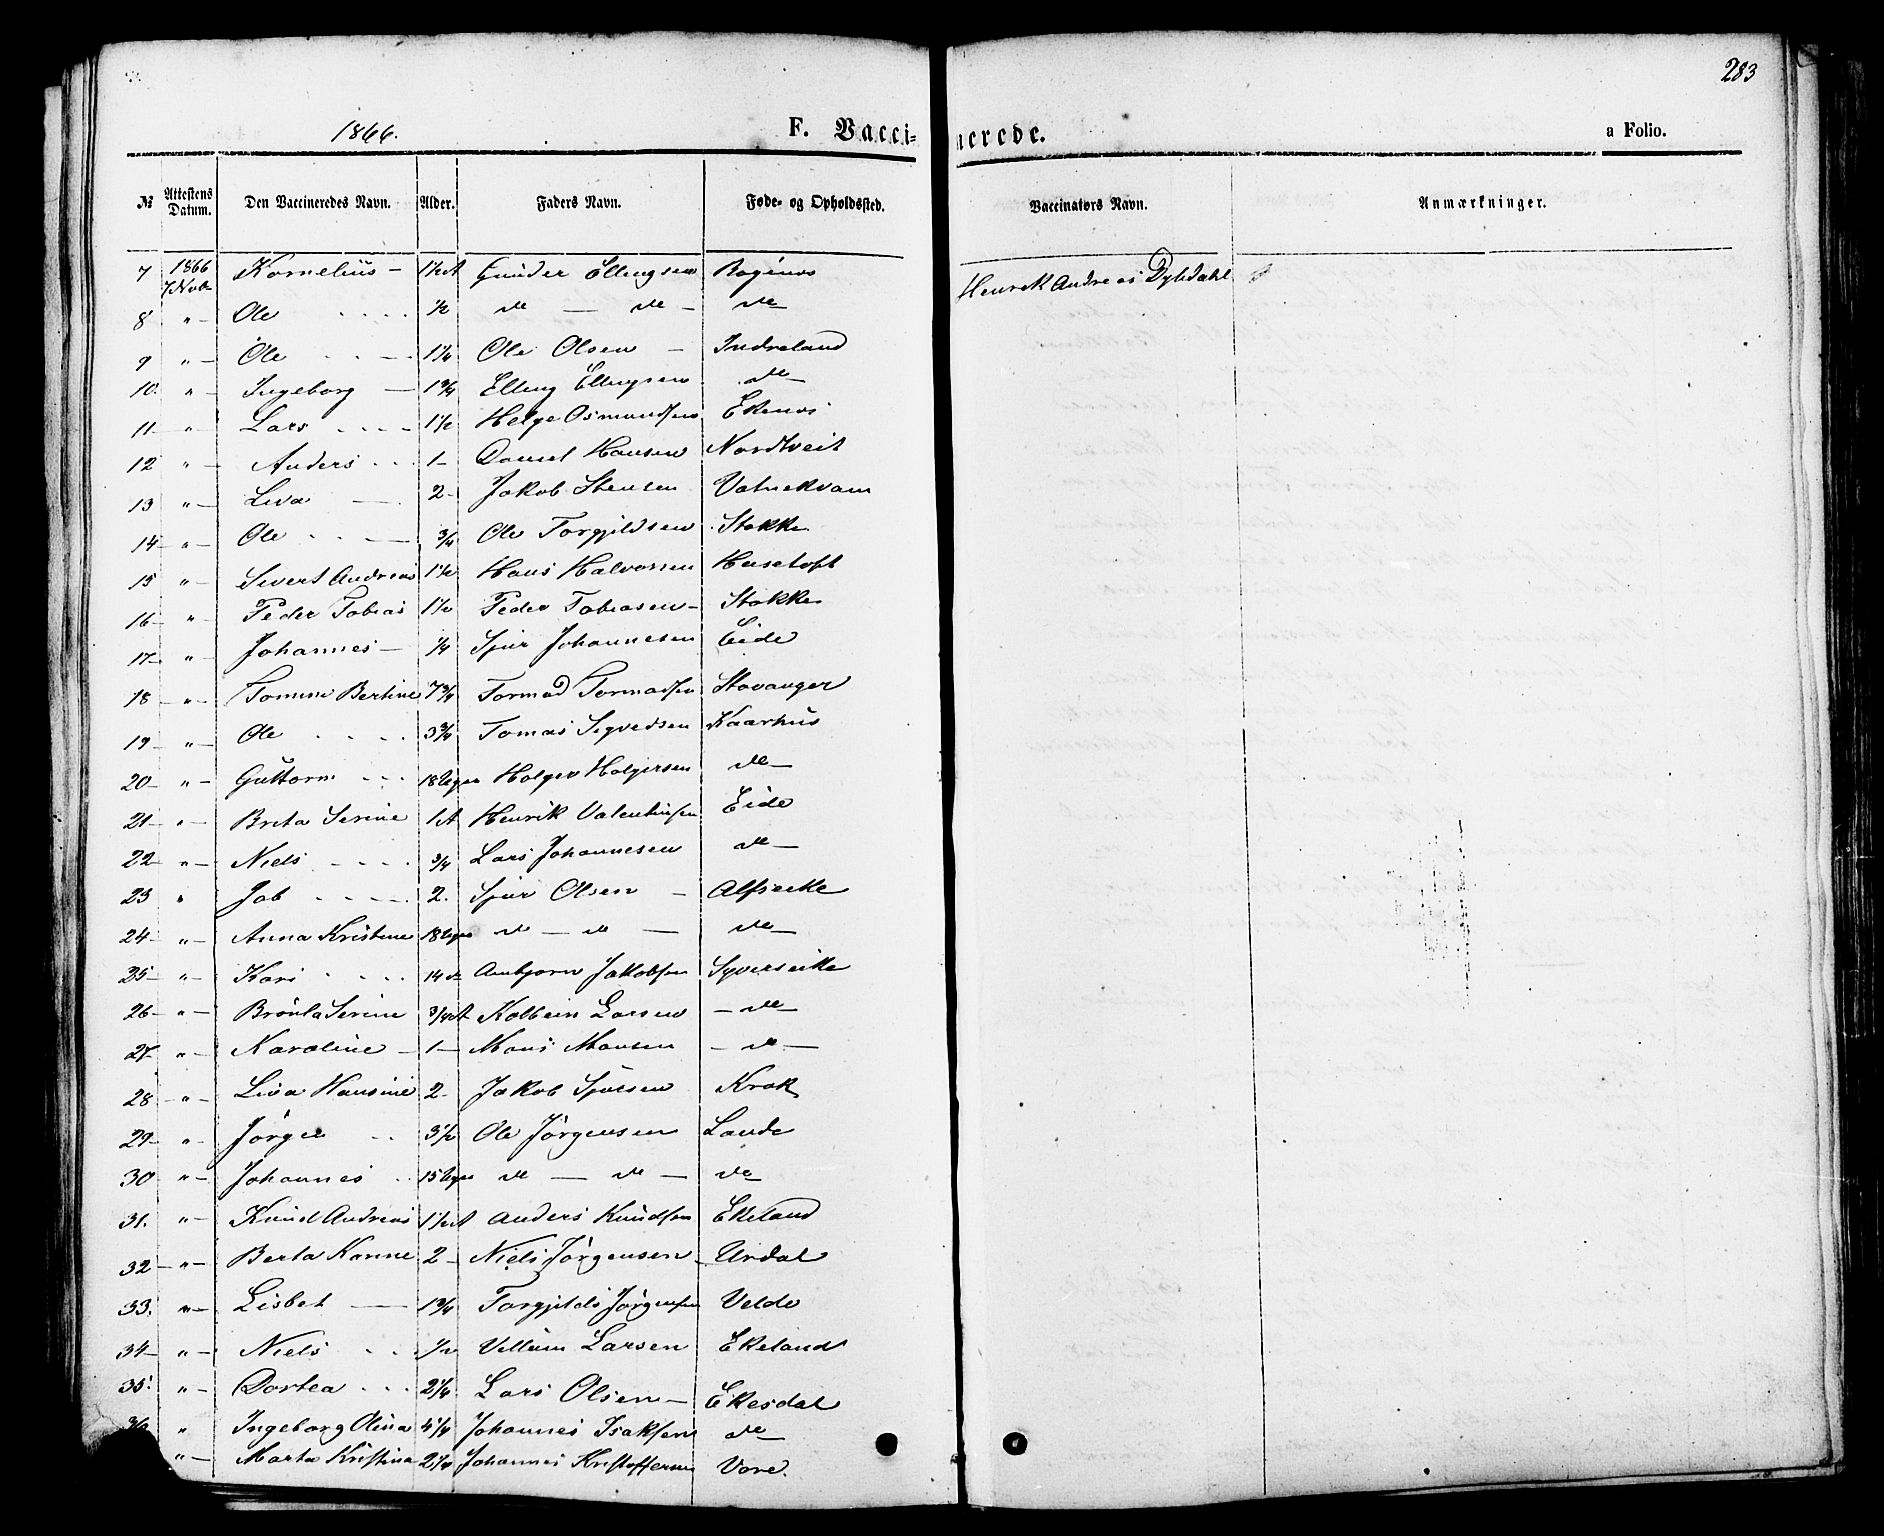 283
1866. F. Vaccinerede. a Folio.
№ Attestens Datum. Den Vaccineredes Navn. Alder. Faders Navn. Føde- og Opholdssted. Vaccinators Navn. Anmærkninger.
7 1866 7 Nvb Kornelius - 1½ A Gunder Ellingsen Henrik Andreas Dybdahl
8 " - Ole ½ do - do - do
9 " - Ole 1¼ Ole Olsen - Indreland
10. " - Ingeborg - 1¾ Elling Ellingsen do
11 - " - Lars 1½ Helge Osmundsen Ekenes
12 " - Anders 1 - Daniel Hansen Nordtveit
13 " - Liva - 2 - Jakob Stensen Vatnekvam
14 - " - Ole - ¾ Ole Torgjildsen Stokke
15 " - Sivert Andreas 1½ Hans Halvorsen Husetoft
16 - " - Peder Tobias 1½ Peder Tobiasen - Stokke
17 - " - Johannes - ¼ Sjur Johannesen Eide
18 - " - Bertine 7¾ Tormod Tormodsen Stavanger
19 - " - Ole 3¾ Tomas Sigvedsen Kaarhus
20 - " - Guttorm 18 Uger Holger Holgersen do
21 - " - Brita Serine 1 A Henrik Valentinsen Eide
22 - " - Niels ¾ Lars Johannesen do -
23 " Job 2. Sjur Olsen - Alfsvike
24 - " - Anna Kristine 18 Uger do - do - do -
25 - " - Kari 14 do Anbjørn Jakobsen Syversvike
26 - " - Serine ¾ A Kolbein Larsen - do -
27 - " - Karoline - 1 - Mons Monsen - do -
28 - " - Liva Hansine 2 - Jakob Krak
29 - " - Jørgen 3½ Ole Jørgensen Lande
30 " - Johannes 15 Uger do - do - do
31. " - Knud Andreas 1½ A Anders Knudsen Ekeland
32 - " - Berta Karine 2 - Niels Jørgensen Urdal
33. " - Lisbet - 1¾ Torgjilds Jørgensen Velde
34 - " - Niels ½ Villum Larsen Ekeland
35. " - Dortea 2¼ Lars Olsen - Ekesdal
36 " Ingeborg Olina 4¼ Johannes Isaksen do
" - Marta Kristina 2¼ Johannes Kristoffersen Vore.